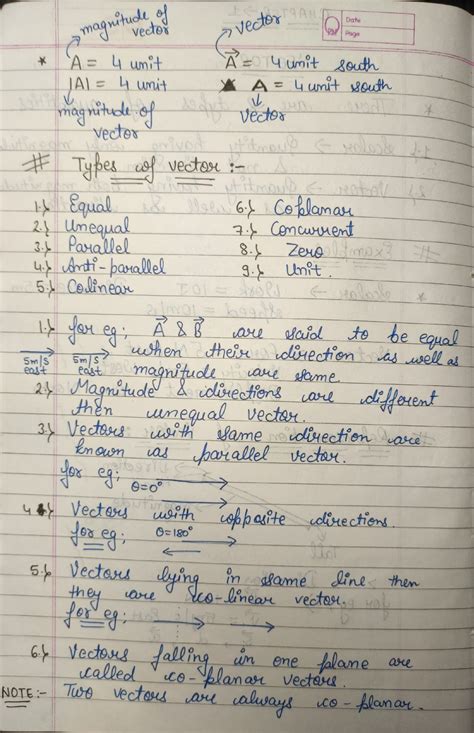 Date
Page
magnitude of vector
vector
* A = 4 unit
A⃗ = 4 unit south
|A| = 4 unit
A = 4 unit south
magnitude of vector
vector
# Types of vector :-
1.} Equal
2.} Unequal
3.} Parallel
4.} Anti-parallel
5.} Colinear
6.} Coplanar
7.} Concurrent
8.} Zero
9.} Unit.
1.} for eg; A⃗ & B⃗ are said to be equal
when their direction as well as
magnitude are same.
5m/s east
5m/s east
2.} Magnitude & directions are different
then unequal vector.
3.} Vectors with same direction are
known as parallel vector.
for eg;
θ=0°
4.} Vectors with opposite directions.
for eg; θ=180°
5.} Vectors lying in same line then
they are co-linear vector.
for eg;
6.} Vectors falling in one plane are
called co-planar vectors.
NOTE:- Two vectors are always co-planar.